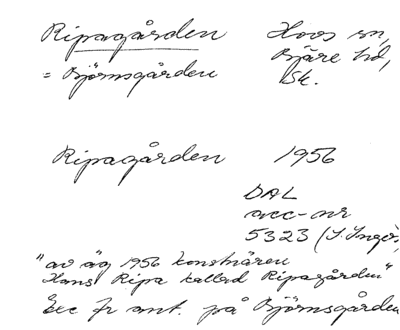 Ripagården Hovs sn,
= Björnsgården Bjäre hd,
Sk.
Ripagården 1956
DAL
acc-nr
5323 (S.Ingers,
"av äg 1956 konstnären
Hans Ripa kallad Ripagården"
Exc fr ant. på Björnsgården